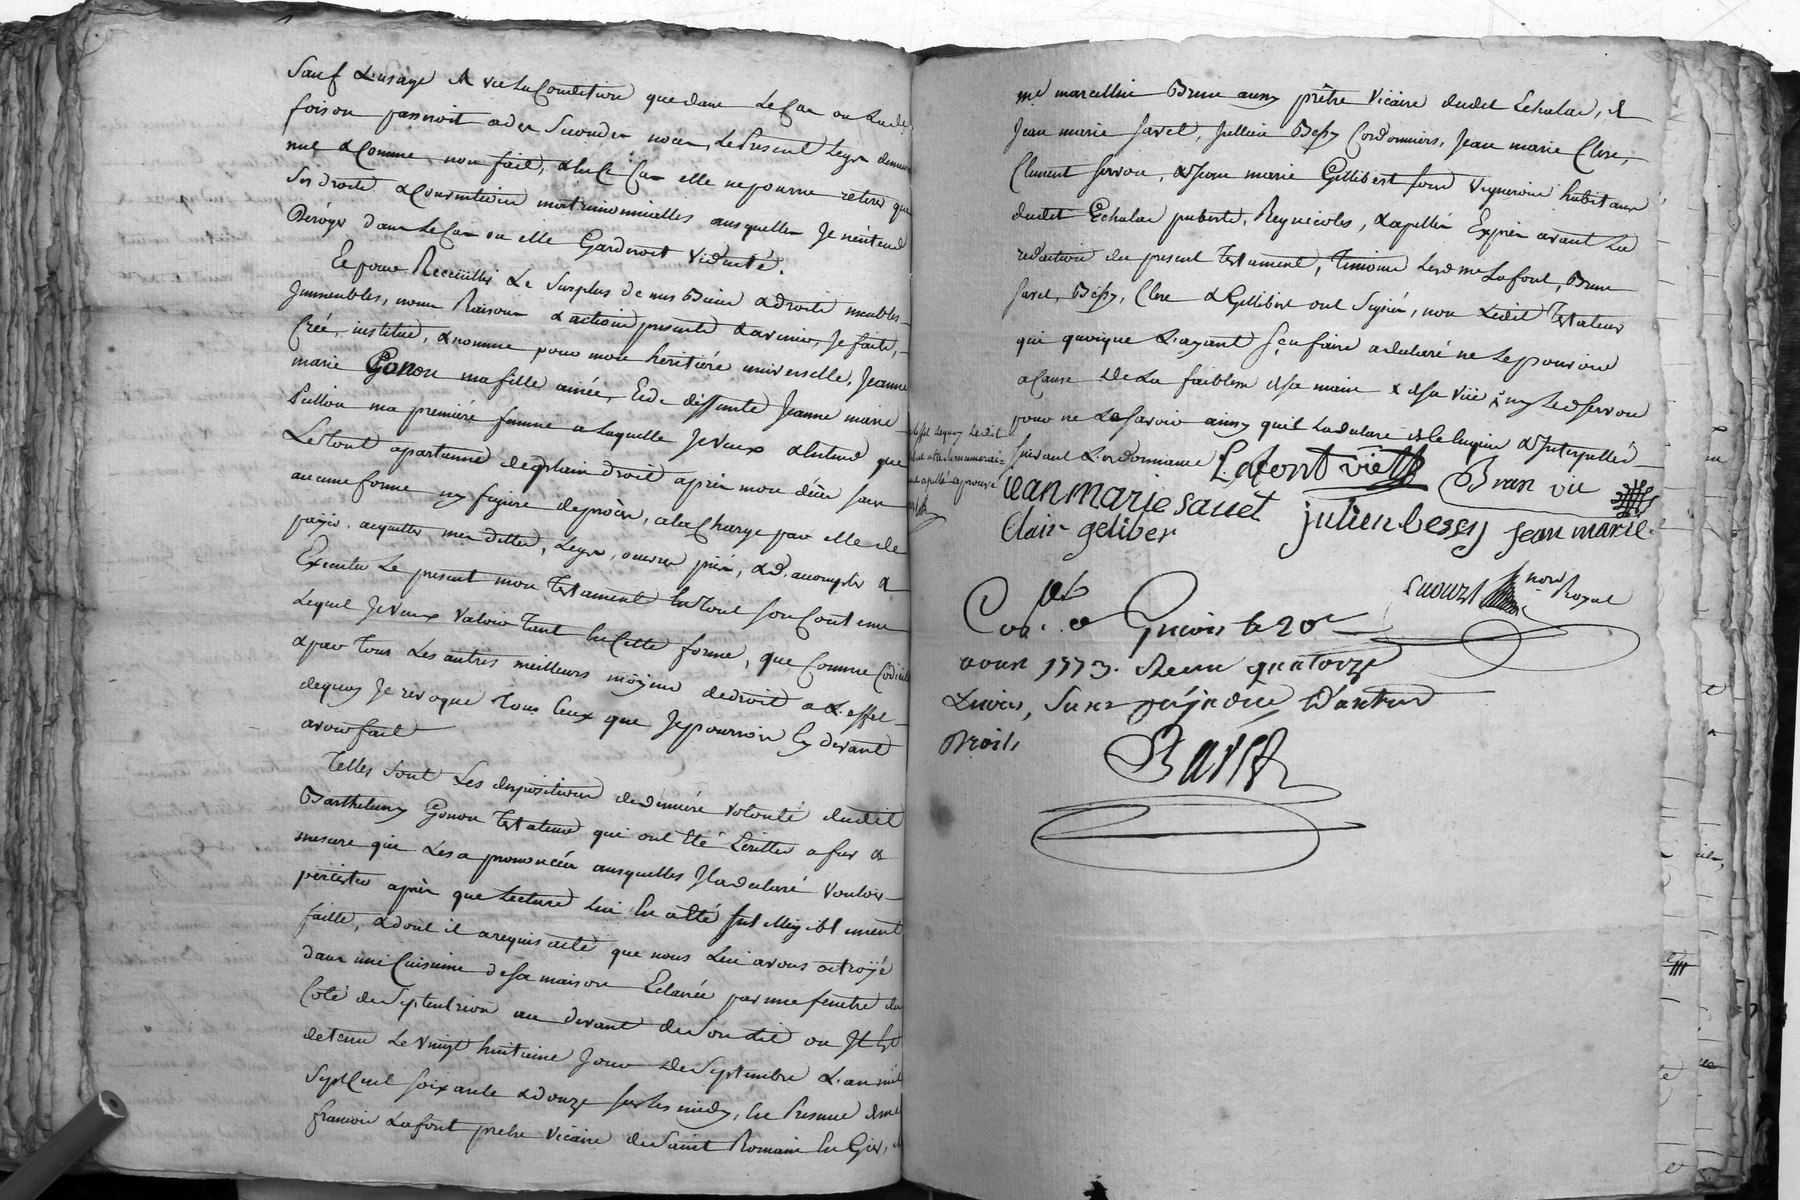 Sauf L'usage et vie La Condition que dans Le Cas ou Ladt
foison passeroit a des Secondes noces, Le Present Legs demeure
nul & Comme non fait, & en Ce Cas elle ne pourra retirer que
Ses droits & Conventions matrimonnialles ausquelles Je n'entend
Déroger dans Le Cas ou elle Garderoit viduité.
Et pour Receüillir Le Surplus de mes Biens & droits meubles
Immeubles, noms Raisons & actions presents & avenir, Je faits,
Créé, institue, & nomme pour mon héritiére universelle, Jeanne
marie Gonon ma fille ainée, Et de deffunte Jeanne marie
ma premiére femme a Laquelle Je Veux & Entend que
Le tout apartienne de plain droit aprés mon décés sans
aucune forme ny figure de procés, a la Charge par elle de
payer, acquitter mes dettes, Legs, oeuvres pies, & d'accomplir &
Executer Le present mon Testament En Tout son Contenu
Lequel Je Veux Valoir Tant En Cette forme, que Comme Codicile
& par Tous Les autres meilleurs moyens de droit a L'effet
dequoy Je revoque Tous Ceux que Je pourrois Cy devant
avoir fait
Telles Sont Les dispositions de derniére volonté dudit
Barthelemy Gonon Testateur qui ont Eté Ecrittes a fur &
mesure qu'il Les a prononcées ausquelles Il a declaré Vouloir
persister aprés que Lecture Lui En a Eté intelligiblement
faitte, & dont il a requis acte que nous Lui avons octroyé
dans une Cuisinne de sa maison Eclairée par une fenetre du
Coté du Septentrion au devant de Son Lit ou Il Est
detenu Le vingt huitieme Jour de Septembre L'an mil
Sept Cent soixante & douze sur les midy, En Presence de me
francois Lafont pretre vicaire de Saint Romain En Gier, &
me marcellin Brun aussy prêtre Vicaire dudit Echalas, &
Jean marie Savel, Jullien Bessy Cordonniers, Jean marie Clere,
Clement Servou, & Jean marie Gellibert tous Vignerons habitans
dudit Echalas puberts, Regnicoles, & apellés Exprés avant La
redaction du present Testament, Temoins Lesd mes Lafont, Brun
Savel, Bessy, Clere & Gellibert ont Signés, non Ledit Testateur
qui quoique L'ayant sçu faire a declaré ne Le pouvoir
a Cause de La faiblesse de sa main & de sa vüe ny Led Servou
pour ne Le Savoir ainsy qu'il La declaré de Ce Enquis & Interpellés
suivant L'ordonnance
Lafont vic Brun vic
jean marie savel julien bessy jean marie
Clair geliber
nore Royal
Conlé a Givors le 20e
aoust 1773. Receu quatorze
Livres, Sans préjudice d'autres
Droits